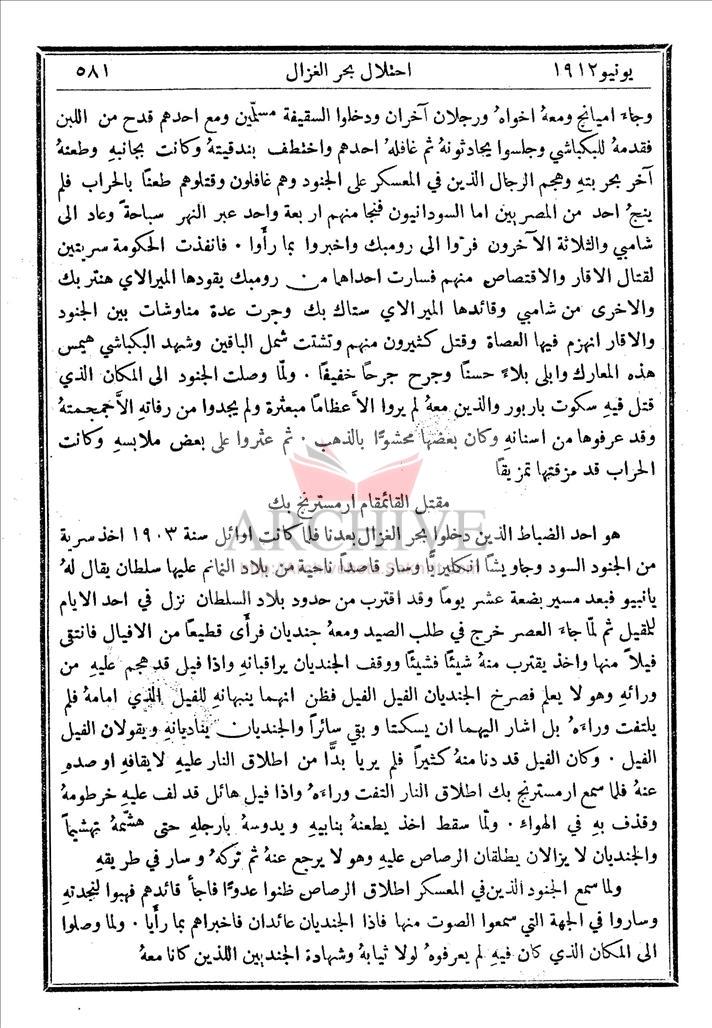 يونيو ١٩١٢ احتلال بحر الغزال ٥٨١
وجاء اميانج ومعهُ اخواهُ ورجلان آخران ودخلوا السقيفة مسلّمين ومع احدهم قدح من اللبن
فقدمهُ للبكباشي وجلسوا يحادثونهُ ثم غافلهُ احدهم واختطف بندقيتهُ وكانت بجانبهِ وطعنهُ
آخر بحربتهِ وهجم الرجال الذين في المعسكر على الجنود وهم غافلون وقتلوهم طعنًا بالحراب فلم
ينجُ احد من المصريين اما السودانيون فنجا منهم اربعة واحد عبر النهر سباحةً وعاد الى
شامبي والثلاثة الآخرون فرّوا الى رومبك واخبروا بما رأوا . فانفذت الحكومة سريتين
لقتال الاقار والاقتصاص منهم فسارت احداهما من رومبك يقودها الميرالاي هنتر بك
والاخرى من شامبي وقائدها الميرالاي ستاك بك وجرت عدة مناوشات بين الجنود
والاقار انهزم فيها العصاة وقتل كثيرون منهم وتشتت شمل الباقين وشهد البكباشي هيمس
هذه المعارك وابلى بلاءً حسنًا وجرح جرحًا خفيفًا . ولمّا وصلت الجنود الى المكان الذي
قتل فيهِ سكوت باربور والذين معهُ لم يروا الاّ عظامًا مبعثرة ولم يجدوا من رفاتهِ الاّ جمجمتهُ
وقد عرفوها من اسنانهِ وكان بعضها محشوًّا بالذهب . ثم عثروا على بعض ملابسهِ وكانت
الحراب قد مزقتها تمزيقًا
مقتل القائمقام ارمسترنج بك
ARCHIVE
هو احد الضباط الذين دخلوا بحر الغزال بعدنا فلما كانت اوائل سنة ١٩٠٣ اخذ سرية
من الجنود السود وجاويشًا انكليزيًّا وسار قاصدًا ناحية من بلاد النمانم عليها سلطان يقال لهُ
يانبيو فبعد مسير بضعة عشر يومًا وقد اقترب من حدود بلاد السلطان نزل في احد الايام
للمقيل ثم لمّا جاءَ العصر خرج في طلب الصيد ومعهُ جنديان فرأى قطيعًا من الافيال فانتقى
فيلاً منها واخذ يقترب منهُ شيئًا فشيئًا ووقف الجنديان يراقبانهِ واذا فيل قد هجم عليهِ من
ورائهِ وهو لا يعلم فصرخ الجنديان الفيل الفيل فظن انهما ينبهانهِ للفيل الذي امامهُ فلم
يلتفت وراءَهُ بل اشار اليهما ان يسكتا و بقي سائرًا والجنديان يناديانهِ ويقولان الفيل
الفيل . وكان الفيل قد دنا منهُ كثيرًا فلم يريا بدًّا من اطلاق النار عليهِ لايقافهِ او صدهِ
عنهُ فلما سمع ارمسترنج بك اطلاق النار التفت وراءَهُ واذا فيل هائل قد لف عليهِ خرطومهُ
وقذف بهِ في الهواء . ولمّا سقط اخذ يطعنهُ بنابيهِ ويدوسهُ بارجلهِ حتى هشّمهُ تهشيمًا
والجنديان لا يزالان يطلقان الرصاص عليهِ وهو لا يرجع عنهُ ثم تركهُ وسار في طريقهِ
ولما سمع الجنود الذين في المعسكر اطلاق الرصاص ظنوا عدوًّا فاجأ قائدهم فهبوا لنجدتهِ
وساروا في الجهة التي سمعوا الصوت منها فاذا الجنديان عائدان فاخبراهم بما رأيا . ولما وصلوا
الى المكان الذي كان فيهِ لم يعرفوهُ لولا ثيابهُ وشهادة الجنديين اللذين كانا معهُ